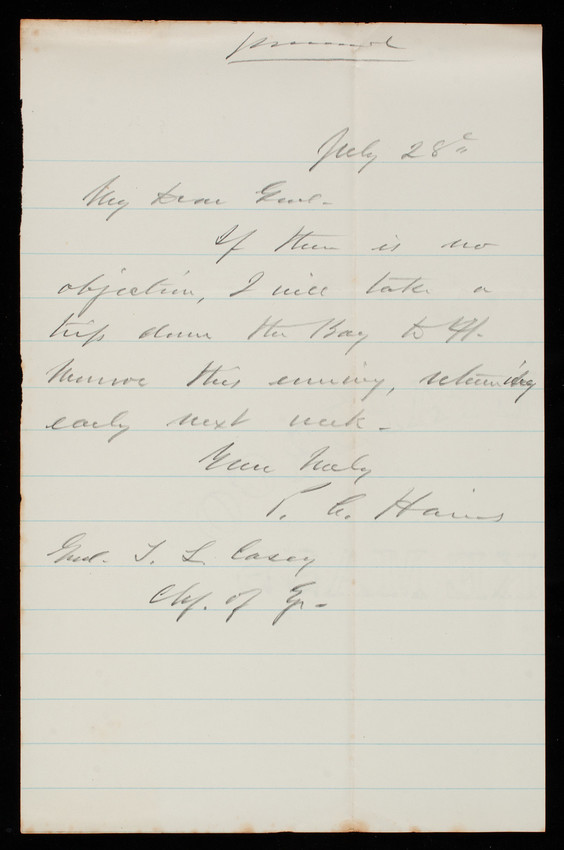 Personal
July 28th
My Dear Genl -
If there is no
objection, I will take a
trip down the Bay to Ft.
Monroe this evening, returning
early next week -
Yours Truly
P. C. Hains
Genl. T. L. Casey
Chf. of Eng -